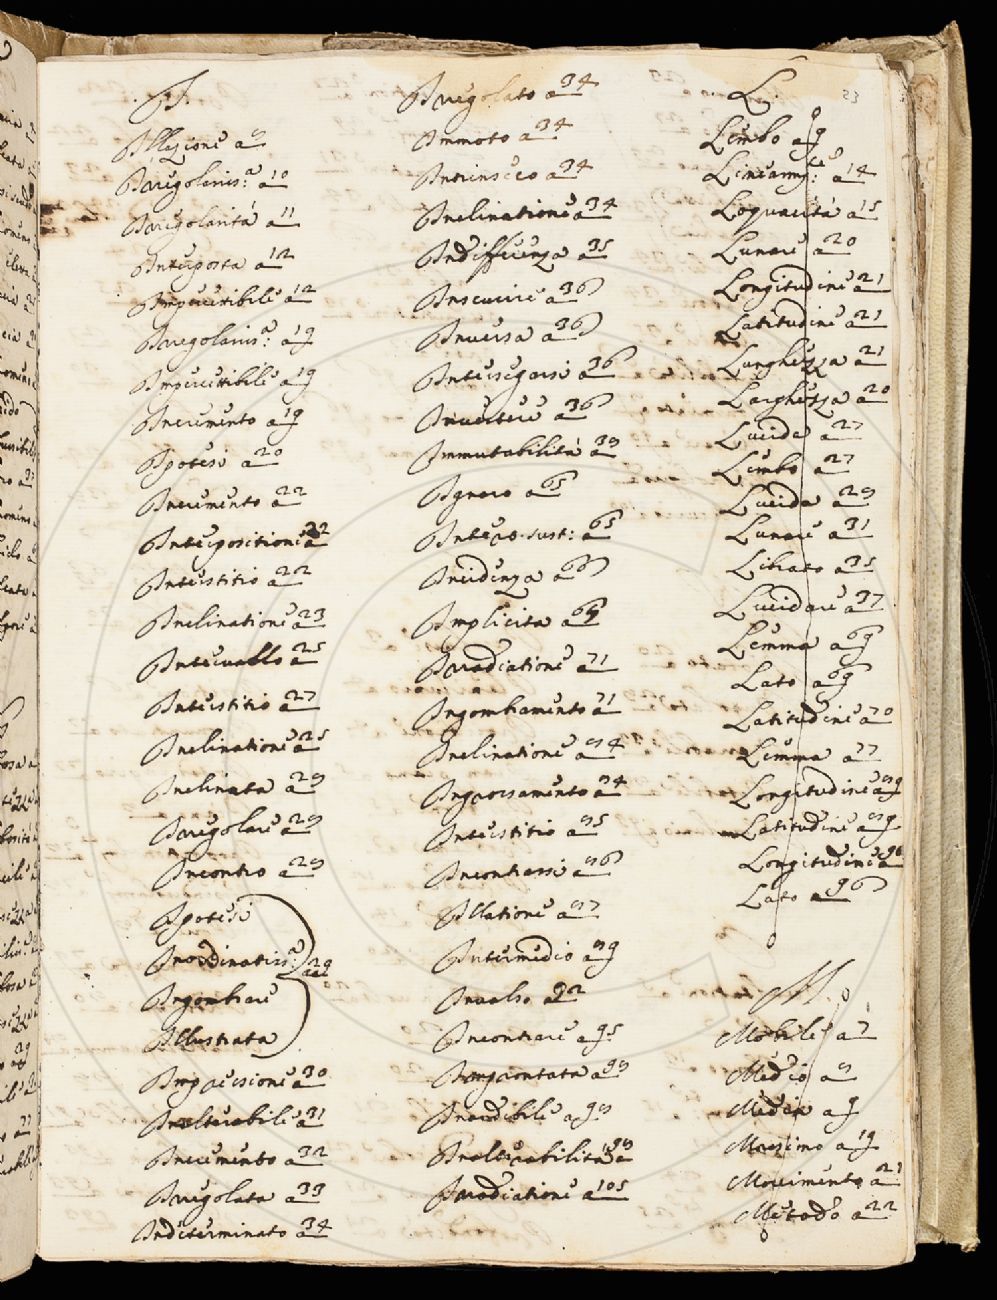 I.
Illazione a 9
Irregolariss.a a 10
Irregolarità a 11
Interposta a 12
Impercettibile a 12
Irregolariss.a a 19
Impercettibile a 19
Incremento a 19
Ipotesi a 20
Incremento a 22
Interpositione a 22
Interstitio a 22
Inclinatione a 23
Intervallo a 25
Interstitio a 27
Inclinatione a 25
Inclinata a 29
Irregolare a 29
Incontro a 29
Ipotesi
Inordinatiss.a a 29
Ingombrare
Illustrata
Impressione a 30
Inalterabile a 31
Incremento a 32
Irregolata a 33
Indeterminato a 34
Irregolato a 34
Immoto a 34
Intrinseco a 34
Inclinatione a 34
Indifferenza a 35
Inserire a 36
Inversa a 36
Intersegarsi a 36
Invertere a 36
Immutabilità a 39
Ignaro a 65
Intero. sust: a 65
Incidenza a 66
Implicita a 69
Irradiatione a 71
Ingombramento a 71
Inclinatione a 84
Ingrossamento a 84
Interstitio a 85
Incontrarsi a 86
Illatione a 87
Intermedio a 89
Invalso a 92
Incontrare a 95
Improntata a 99
Incredibile a 99
Inalterabilità a 99
Irradiatione a 105
L
Limbo a 9
a 14
Loquacità a 15
Lunare a 20
Longitudine a 21
Latitudine a 21
Lunghezza a 21
Larghezza a 20
Lucida a 27
Limbo a 27
Lucida a 29
Lunare a 31
Librato a 35
Lucidare a 37
Lemma a 69
Lato a 69
Latitudine a 70
Lemma a 77
Longitudine a 89
Latitudine a 89
Longitudine a 96
Lato a 96
M
Mobile a 7
Medio a 9
Media a 9
Massimo a 19
Movimento a 21
Metodo a 22